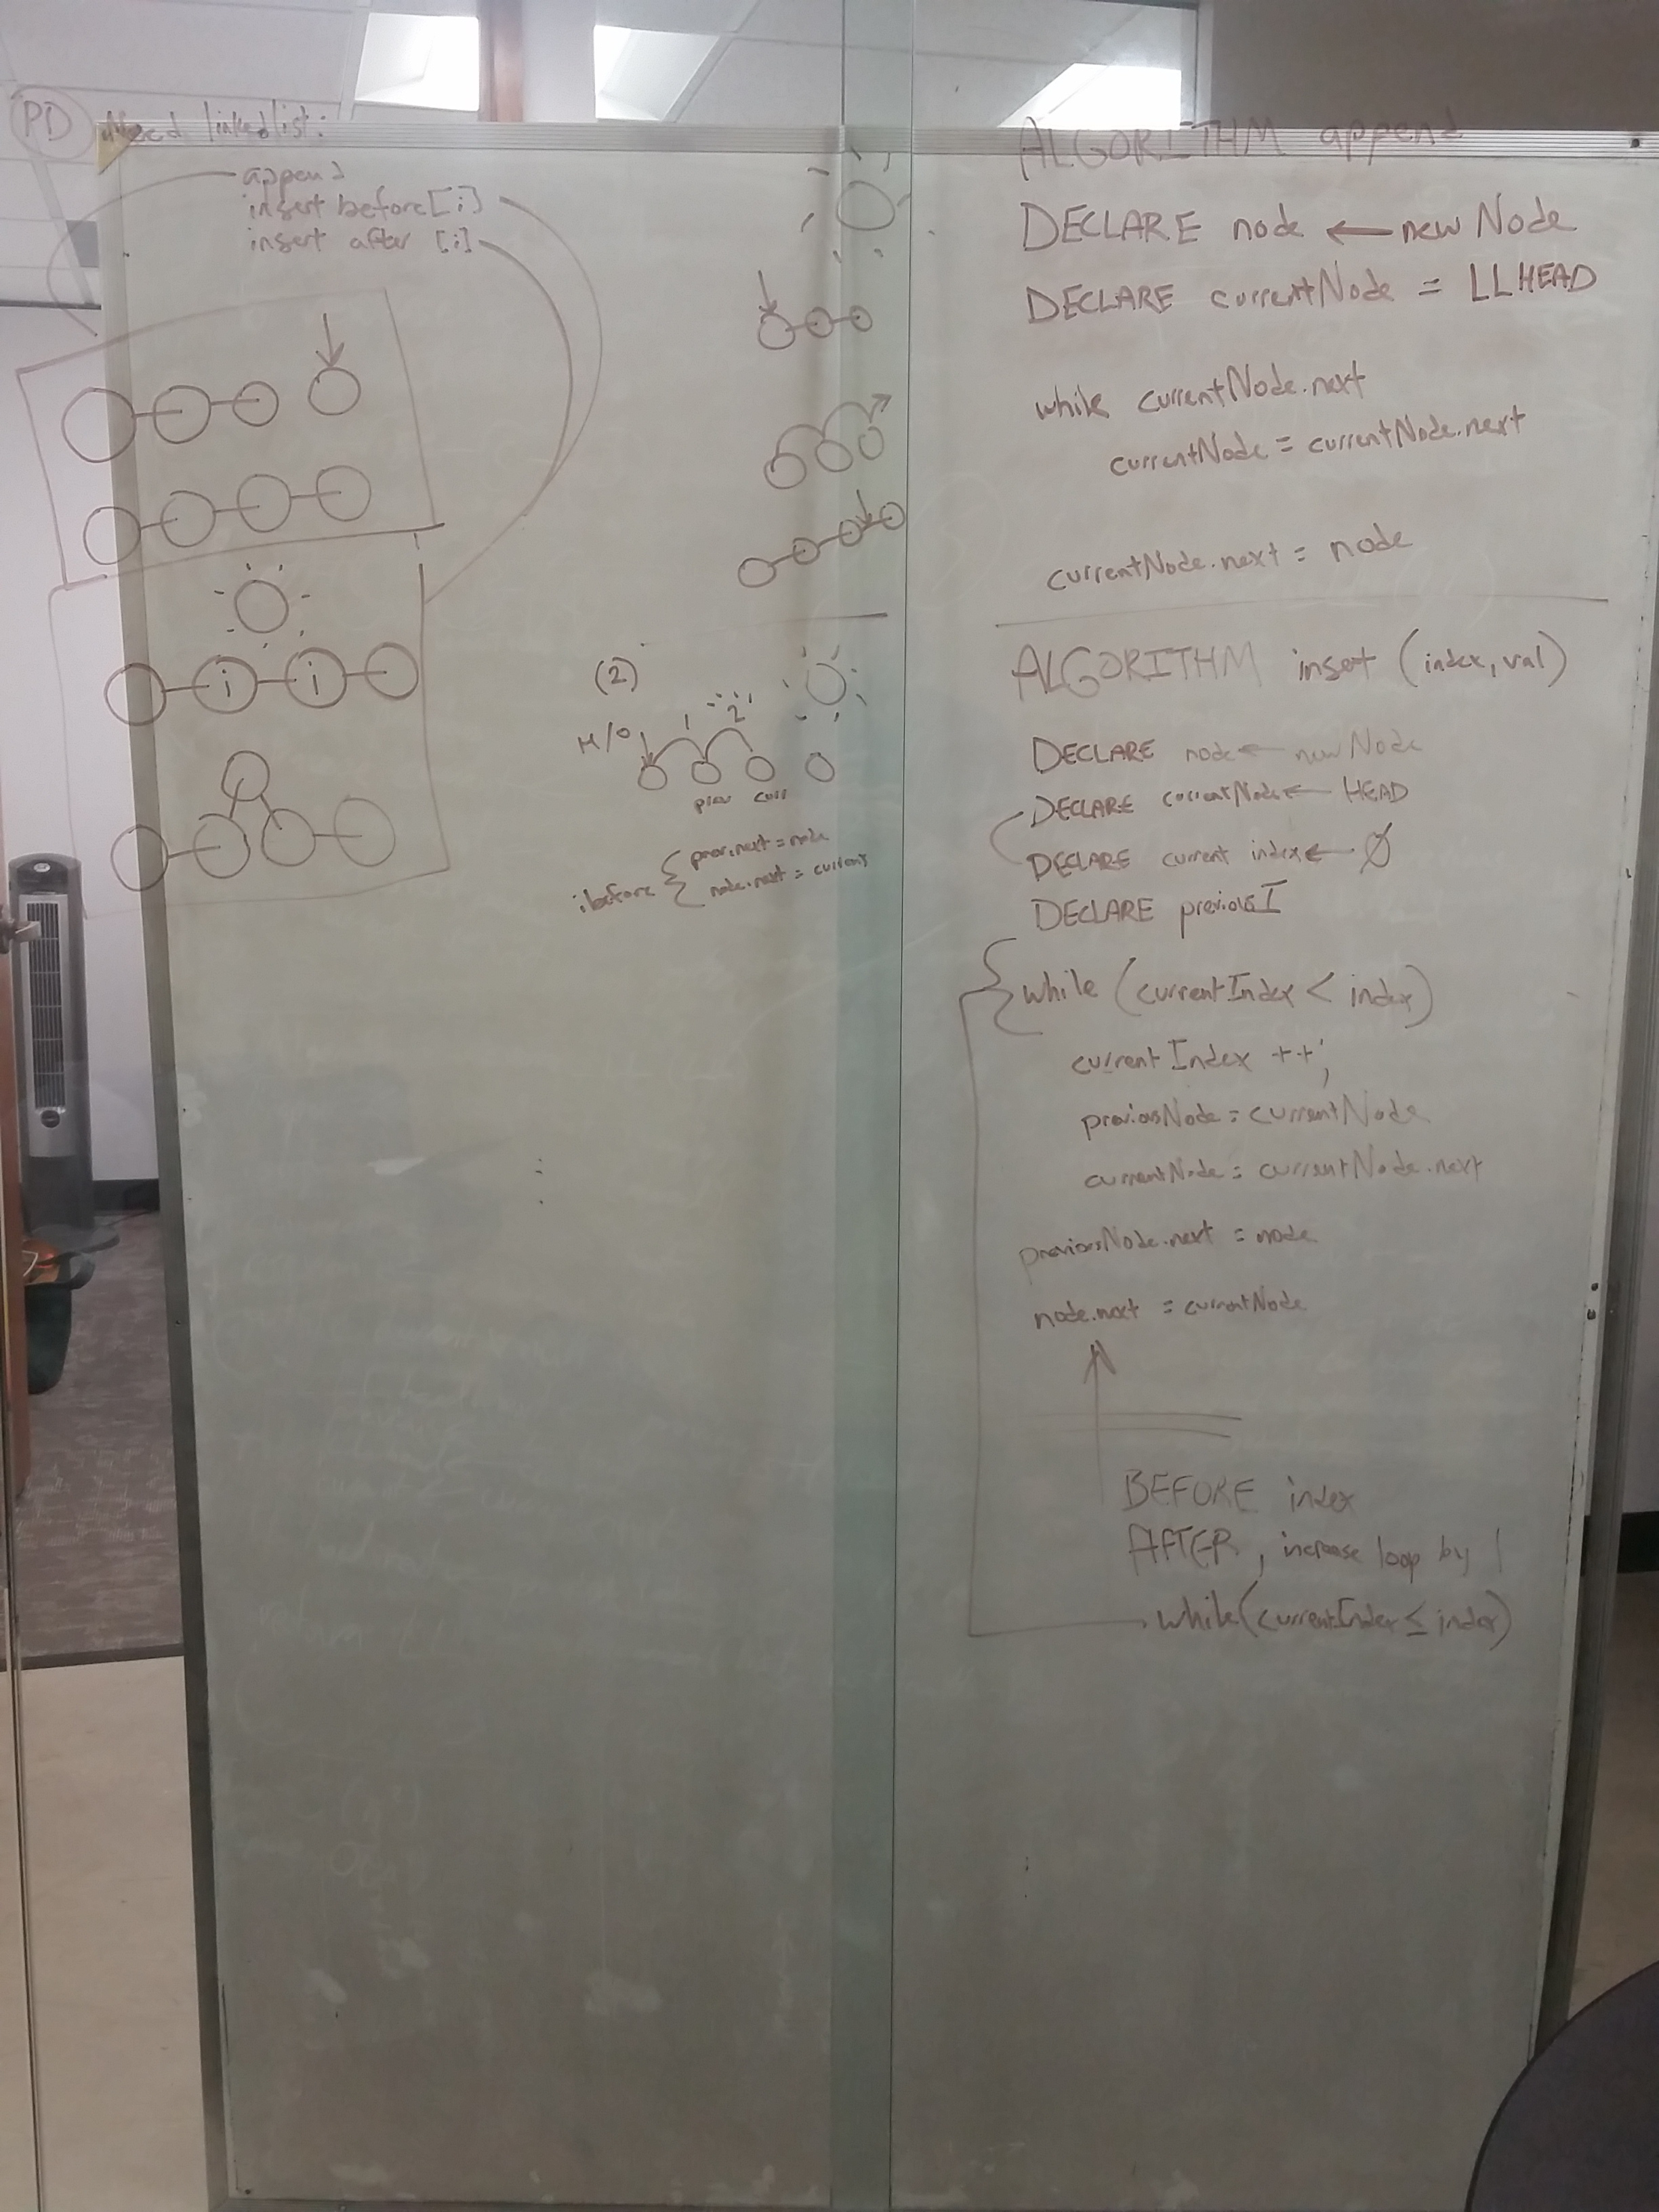 PD Need linkedlist:
append
insert before[i]
insert after [i]
i i
(2)
H/0 1 2
prev curr
ibefore { prev.next = node
node.next = current
ALGORITHM append
DECLARE node ← new Node
DECLARE currentNode = LL HEAD
while currentNode.next
currentNode = currentNode.next
currentNode.next = node
ALGORITHM insert (index, val)
DECLARE node ← new Node
DECLARE currentNode ← HEAD
DECLARE current index ← Ø
DECLARE previousI
while (currentIndex < index)
currentIndex ++;
previousNode = currentNode
currentNode = currentNode.next
previousNode.next = node
node.next = currentNode
BEFORE index
AFTER, increase loop by 1
while (currentIndex ≤ index)